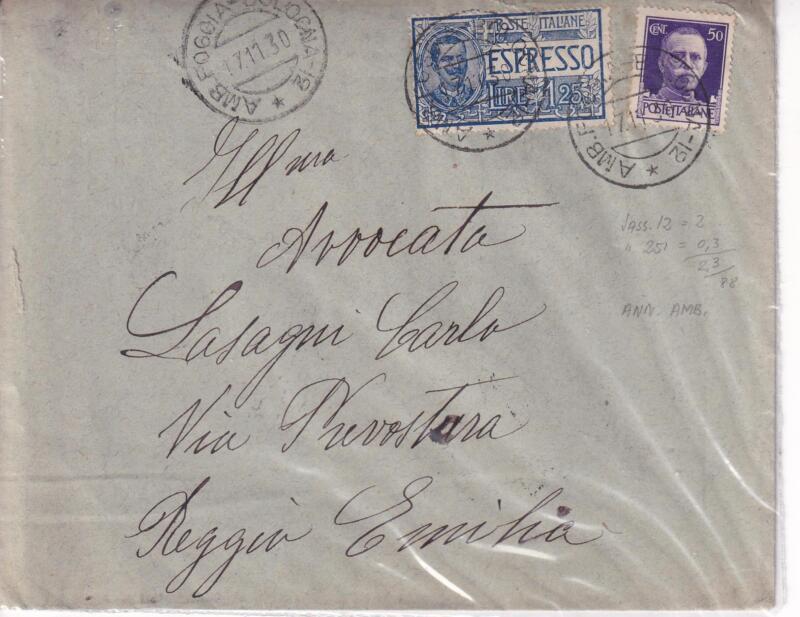 AMB. FOGGIA-BOLOGNA-31
17.11.30
POSTE ITALIANE
ESPRESSO
LIRE 1,25
CENT. 50
POSTE ITALIANE
Ill mo
Avvocato
Lasagni Carlo
Via Prevostura
Reggio Emilia
Sass. 12 = 2
" 251 = 0,3
2,3
88
ANN. AMB.